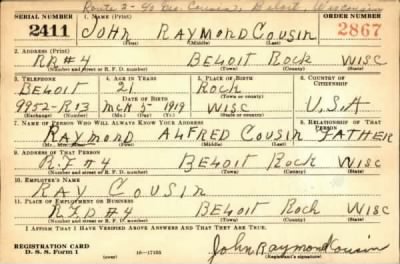 Route 2 - % Geo. Cousin, Beloit, Wisconsin
SERIAL NUMBER 1. NAME (Print) ORDER NUMBER
2411 JOHN RAYMOND COUSIN 2867
(First) (Middle) (Last)
2. ADDRESS (Print)
RR#4 BELOIT ROCK WISC
(Number and street or R. F. D. number) (Town) (County) (State)
3. TELEPHONE 4. AGE IN YEARS 5. PLACE OF BIRTH 6. COUNTRY OF CITIZENSHIP
BELOIT 21 ROCK
DATE OF BIRTH (Town or county)
9952-R13 MCH 5 1919 WISC U.S.A
(Exchange) (Number) (Mo.) (Day) (Yr.) (State or country)
7. NAME OF PERSON WHO WILL ALWAYS KNOW YOUR ADDRESS 8. RELATIONSHIP OF THAT PERSON
RAYMOND ALFRED COUSIN FATHER
(Mr., Mrs., Miss) (First) (Middle) (Last)
9. ADDRESS OF THAT PERSON
R.F #4 BELOIT ROCK WISC
(Number and street or R. F. D. number) (Town) (County) (State)
10. EMPLOYER'S NAME
RAY COUSIN
11. PLACE OF EMPLOYMENT OR BUSINESS
R.F.D #4 BELOIT ROCK WISC
(Number and street or R. F. D. number) (Town) (County) (State)
I AFFIRM THAT I HAVE VERIFIED ABOVE ANSWERS AND THAT THEY ARE TRUE.
REGISTRATION CARD
D. S. S. Form 1 (over) 16-17105
John Raymond Cousin
(Registrant's signature)